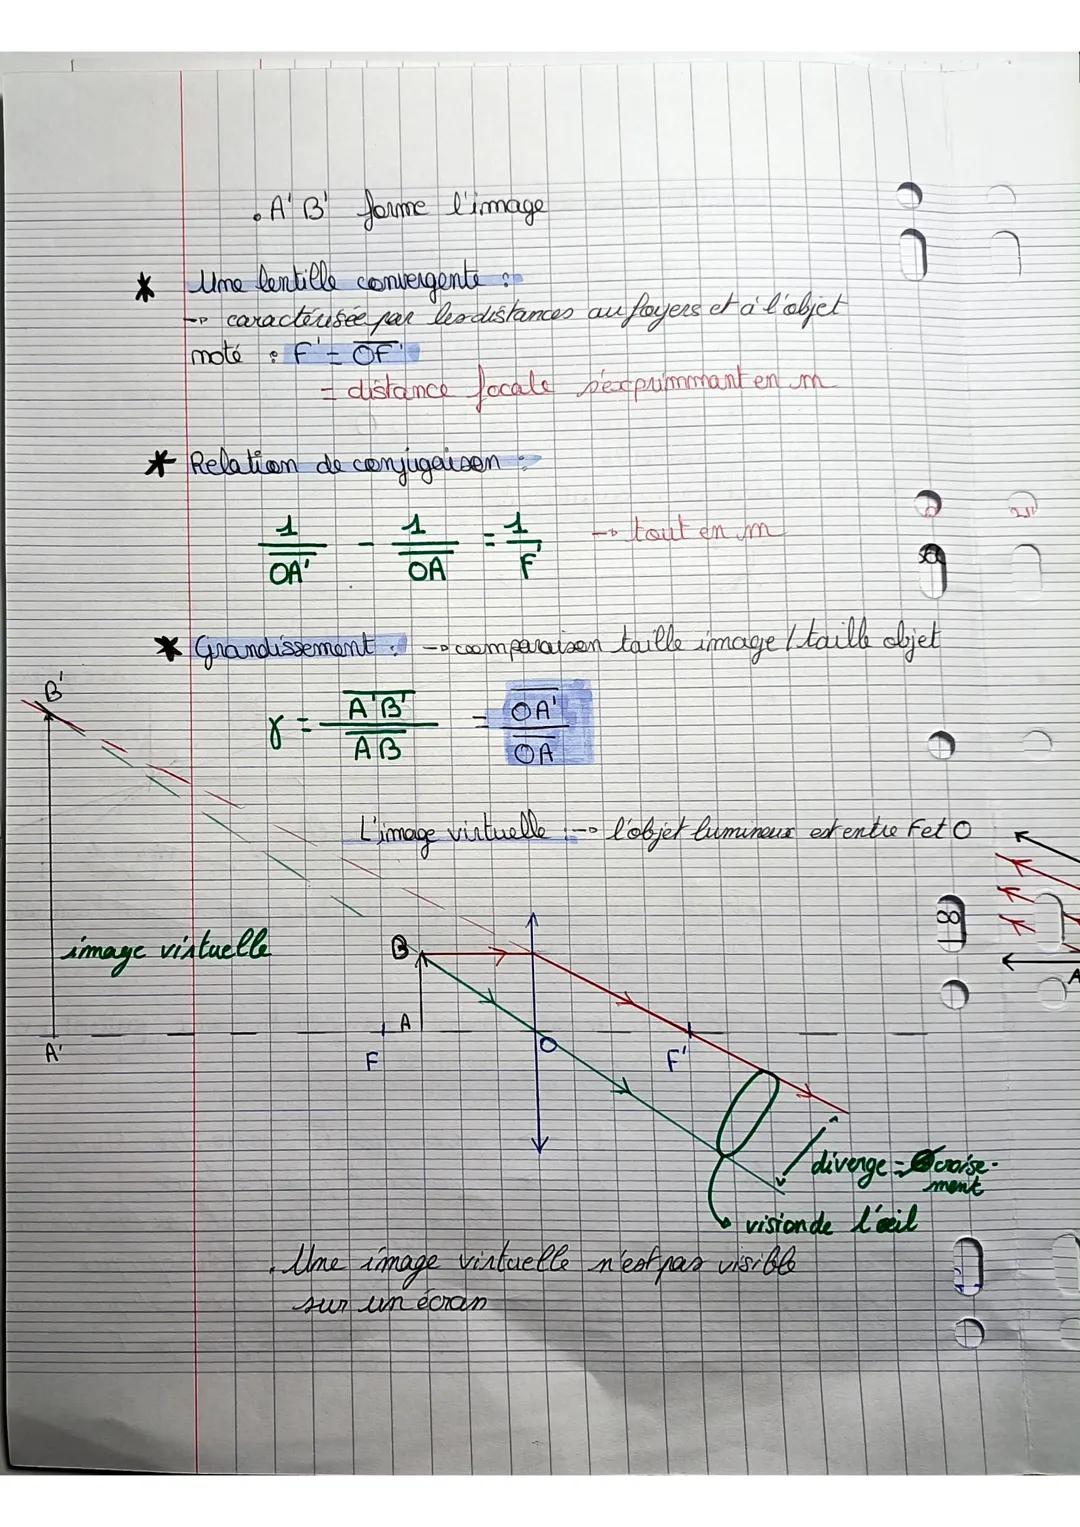 . A'B' forme l'image
* Une lentille convergente :
-> caractérisée par les distances au foyers et à l'objet
noté : F' = OF'
= distance focale s'exprimmant en m
* Relation de conjugaison :
1/OA' - 1/OA = 1/F' -> tout en m
* Grandissement : -> comparaison taille image / taille objet
B'
γ = A'B'/AB = OA'/OA
L'image virtuelle : -> l'objet lumineux est entre F et O
image virtuelle
B
A
A'
F
O
F'
A
diverge = croise-
ment
vision de l'œil
. Une image virtuelle n'est pas visible
sur un écran